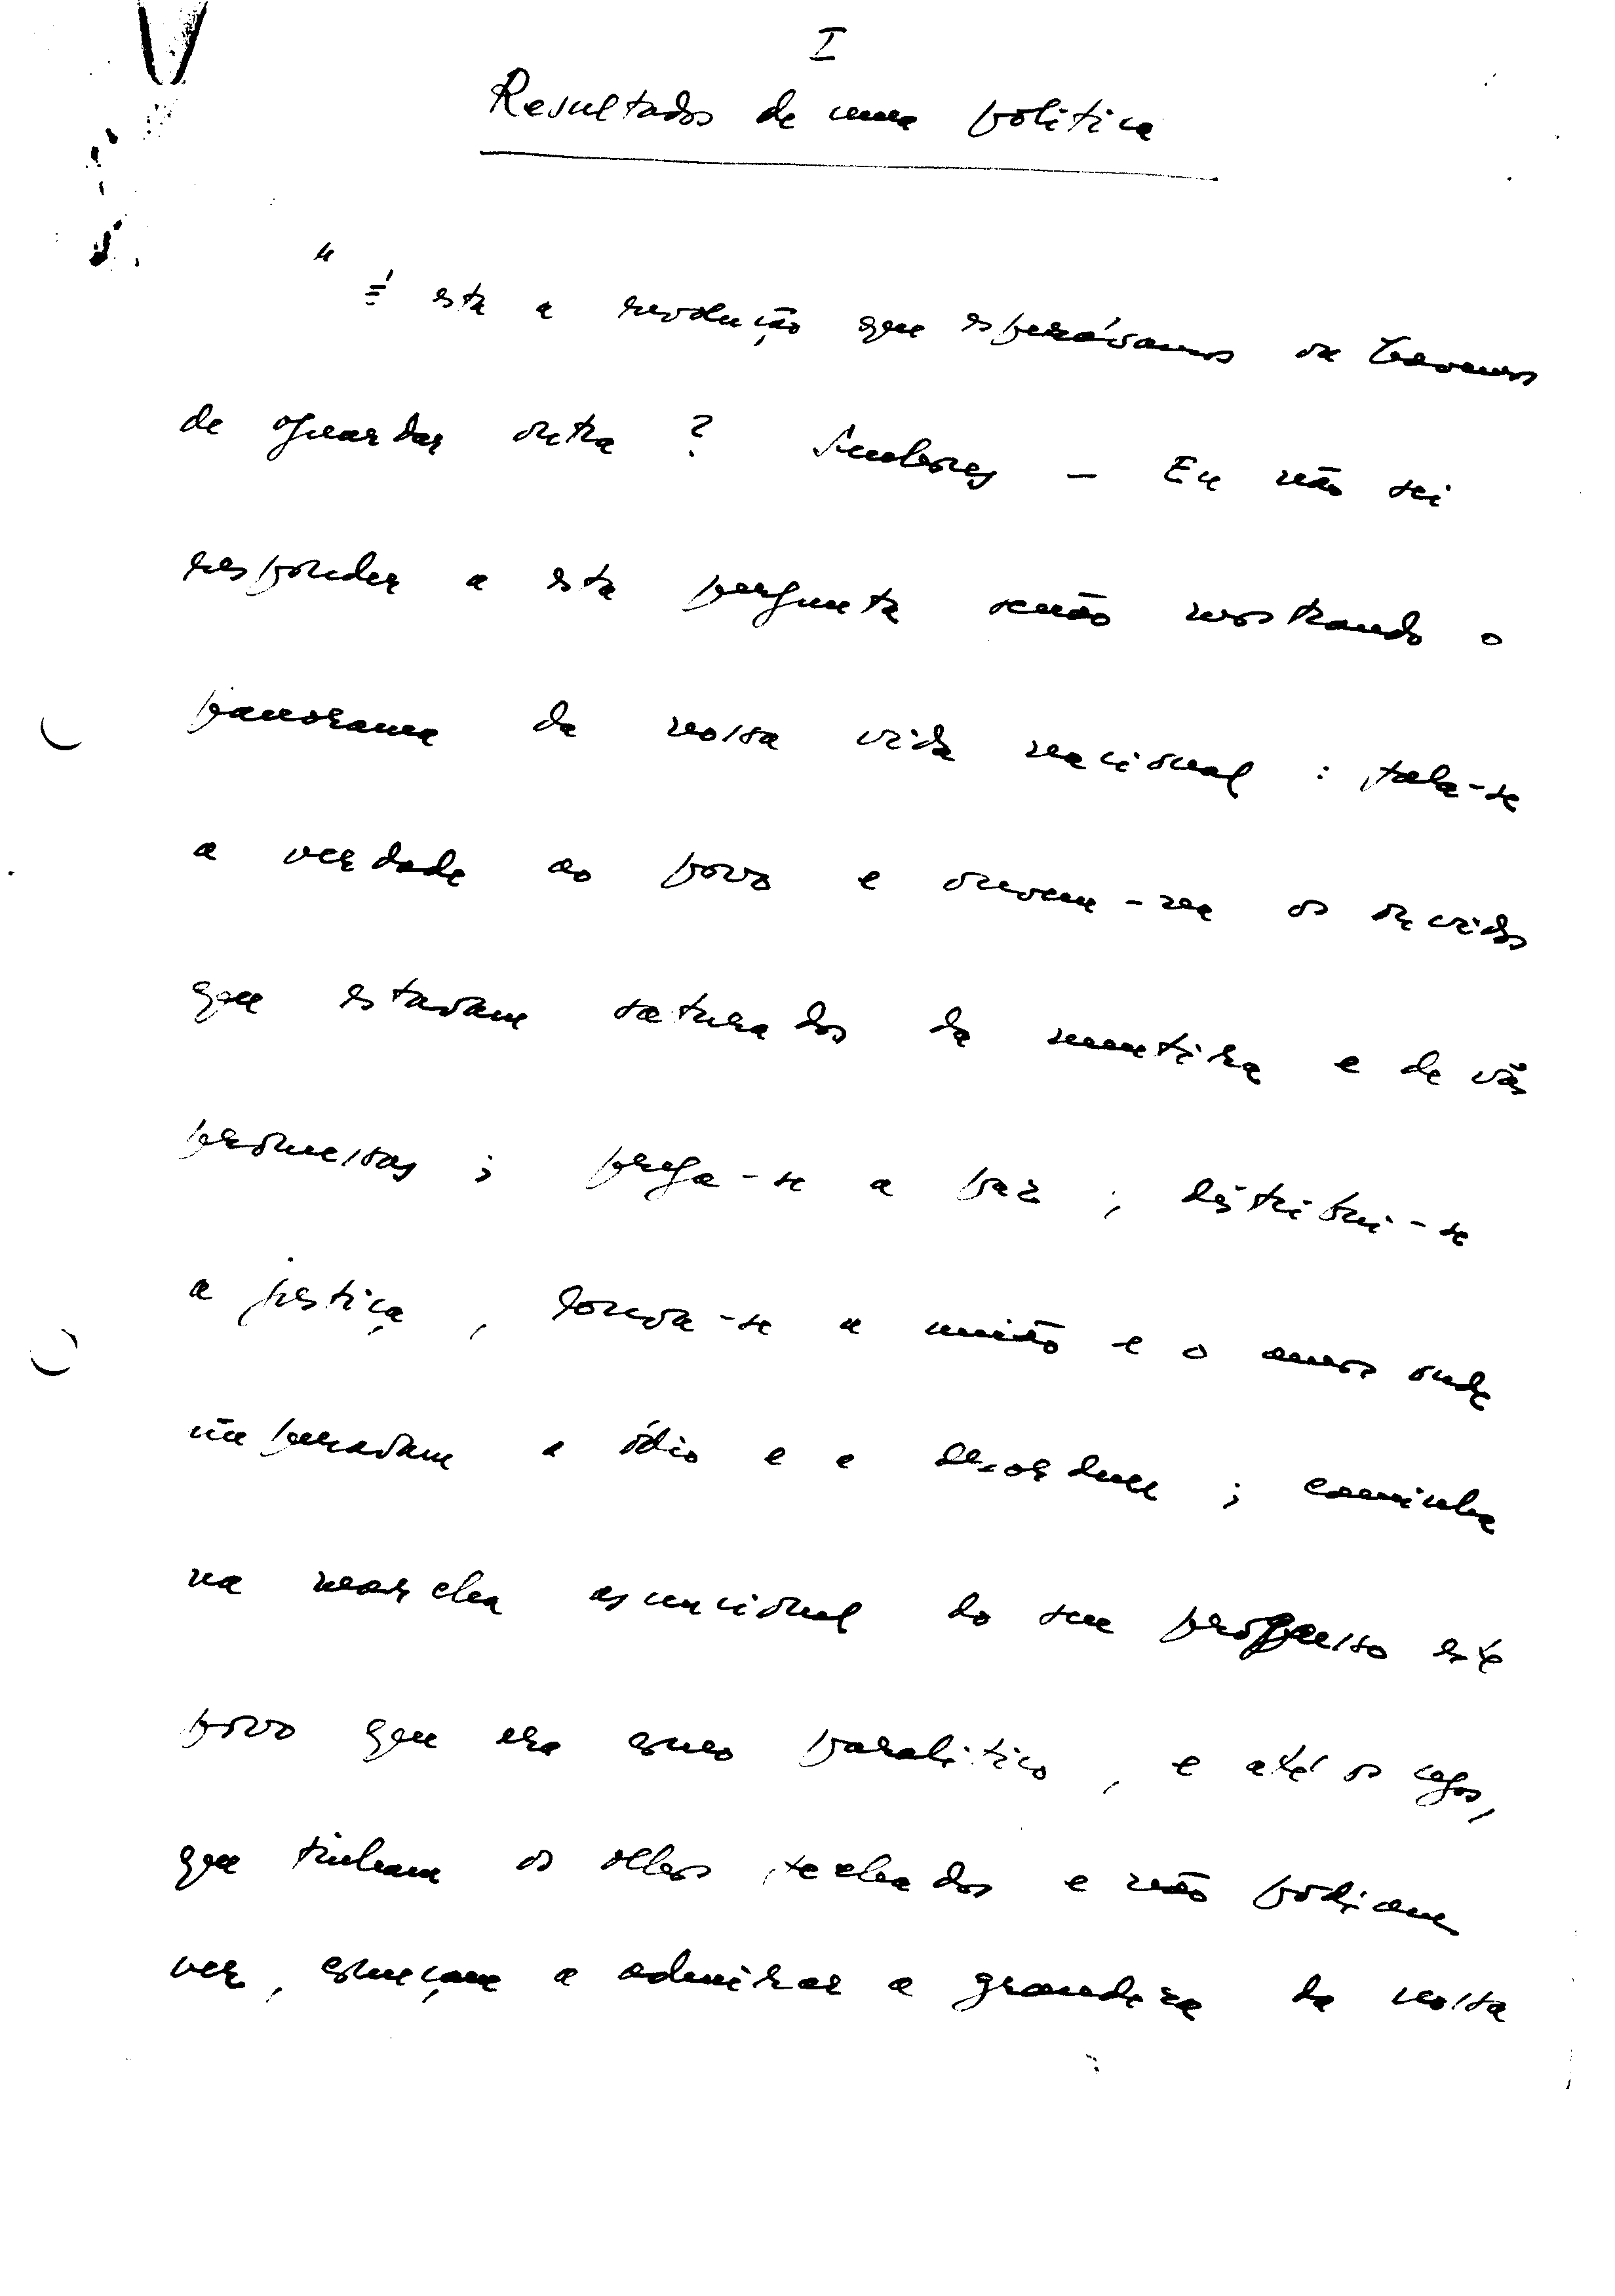 I
Resultados de uma politica
" É esta a revolução que esperávamos ou havemos
de aguardar outra ? Senhores – Eu não sei
responder a esta pergunta senão mostrando o
panorama da nossa vida nacional : fala-se
a verdade ao povo e ouvem-na os ouvidos
que estavam saturados da mentira e de vãs
promessas ; prega-se a paz ; distribui-se
a justiça , louva-se a união e o amor onde
imperavam o ódio e a desordem ; caminha
na marcha ascencional do seu progresso este
povo que era como paralitico , e até os cegos,
que tinham os olhos fechados e não podiam
ver, começam a admirar a grandeza da nossa